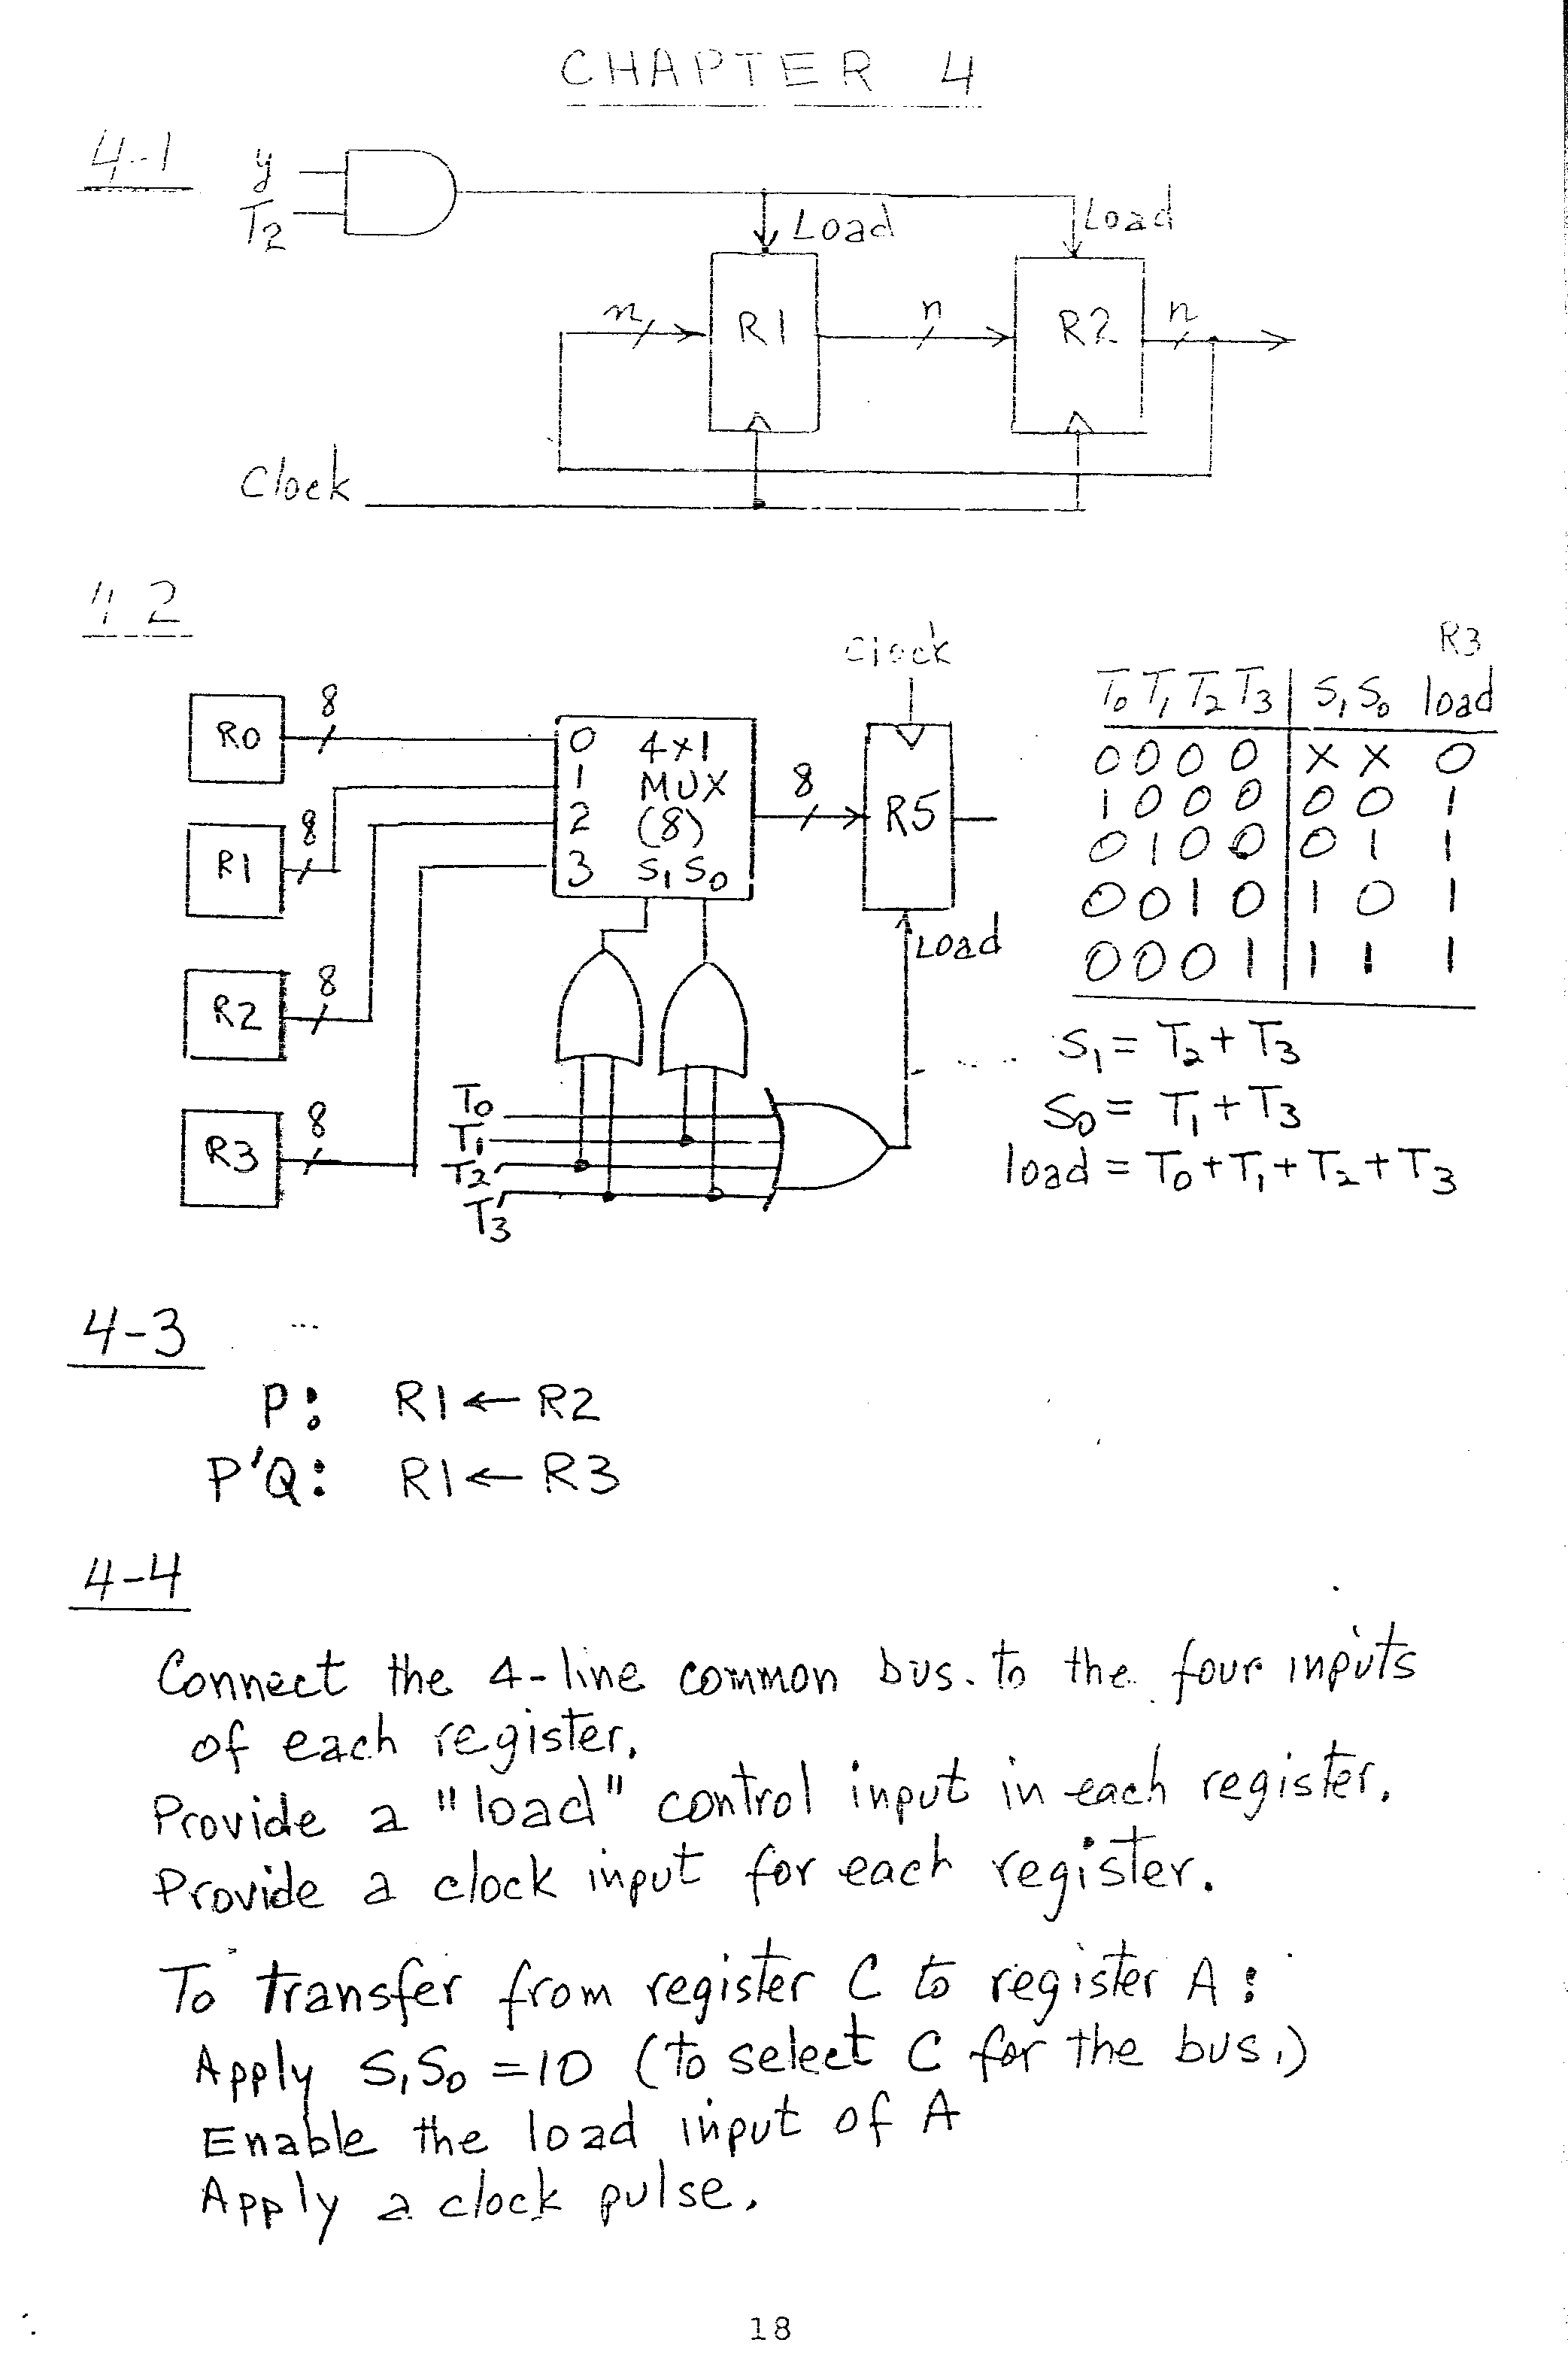 CHAPTER 4
4-1
y
T2
Load
Load
n
R1
n
R2
n
Clock
4-2
Clock
R3
T0 T1 T2 T3 S1 S0 load
0 0 0 0 X X 0
1 0 0 0 0 0 1
0 1 0 0 0 1 1
0 0 1 0 1 0 1
0 0 0 1 1 1 1
R0
8
0 4x1
1 MUX
2 (8)
3 S1 S0
8
R5
Load
R1
8
R2
8
R3
8
T0
T1
T2
T3
S1 = T2 + T3
S0 = T1 + T3
load = T0 + T1 + T2 + T3
4-3
P: R1 ← R2
P'Q: R1 ← R3
4-4
Connect the 4-line common bus. to the four inputs
of each register.
Provide a "load" control input in each register.
Provide a clock input for each register.
To transfer from register C to register A:
Apply S1S0 = 10 (to select C for the bus.)
Enable the load input of A
Apply a clock pulse.
18